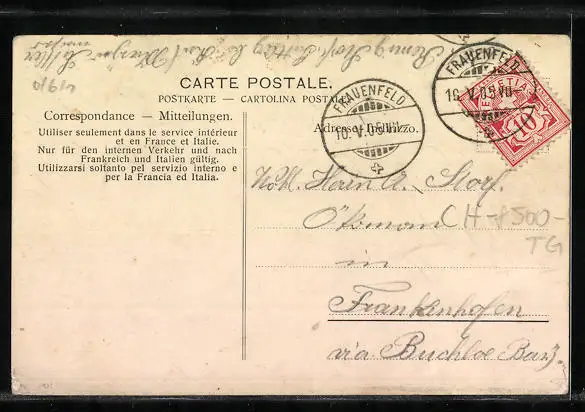 CARTE POSTALE.
POSTKARTE — CARTOLINA POSTALE
Correspondance — Mitteilungen.
Utiliser seulement dans le service intérieur
et en France et Italie.
Nur für den internen Verkehr und nach
Frankreich und Italien gültig.
Utilizzarsi soltanto pel servizio interno e
per la Francia ed Italia.
Adresse. Indirizzo.
FRAUENFELD
10. V. 05
FRAUENFELD
10. V. 05. VII
HELVETIA
10
Herrn A. Storf.
Ökonom
CH-8500-
TG
in
Frankenhofen
via Buchloe Bay.